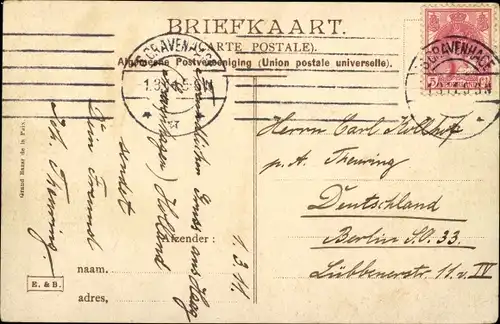 BRIEFKAART.
(CARTE POSTALE).
Algemeene Postvereeniging (Union postale universelle).
'S GRAVENHAGE
'S GRAVENHAGE
Herrn Carl Kollhof
p. A. Theuring
Deutschland
Berlin S.O. 33.
Lübbenerstr. 11.v. IV
1.3.11.
Gruss aus Haag
Holland
sendet
Dein Freund
Joh. Theuring
Afzender:
naam.
adres,
Grand Bazar de la Paix.
E. & B.